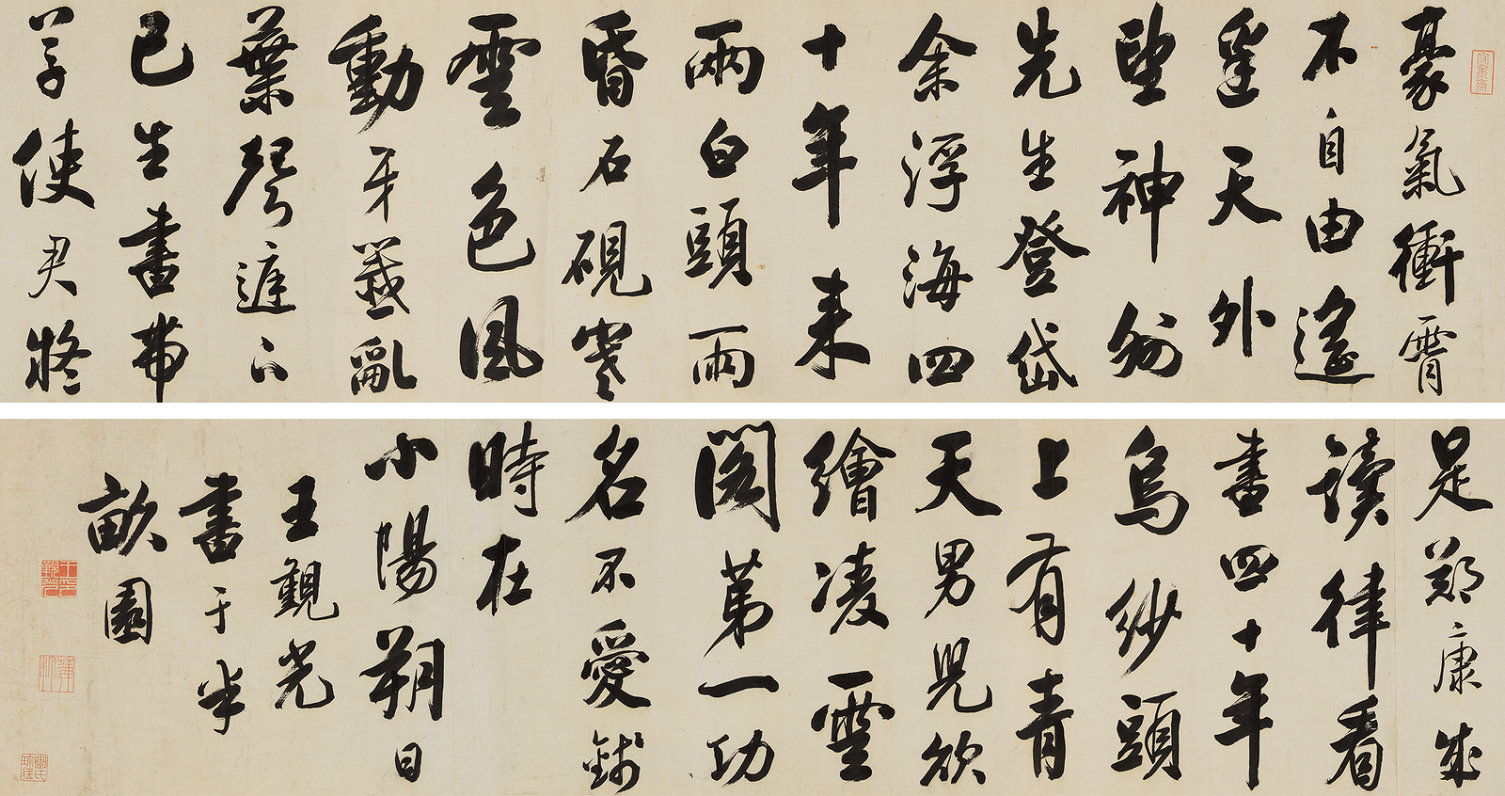 豪氣衝霄
不自由遙
逢天外
望神州
先生登岱
余浮海四
十年來
兩白頭雨
昏石硯寒
雲色風
動牙籤亂
葉聲遮下
已生書帶
草使君將
是鄭康成
讀律看
書四十年
烏紗頭
上有青
天男兒欲
繪凌雲
閣第一功
名不愛錢
時在
小陽朔日
王觀光
書于半
畝園